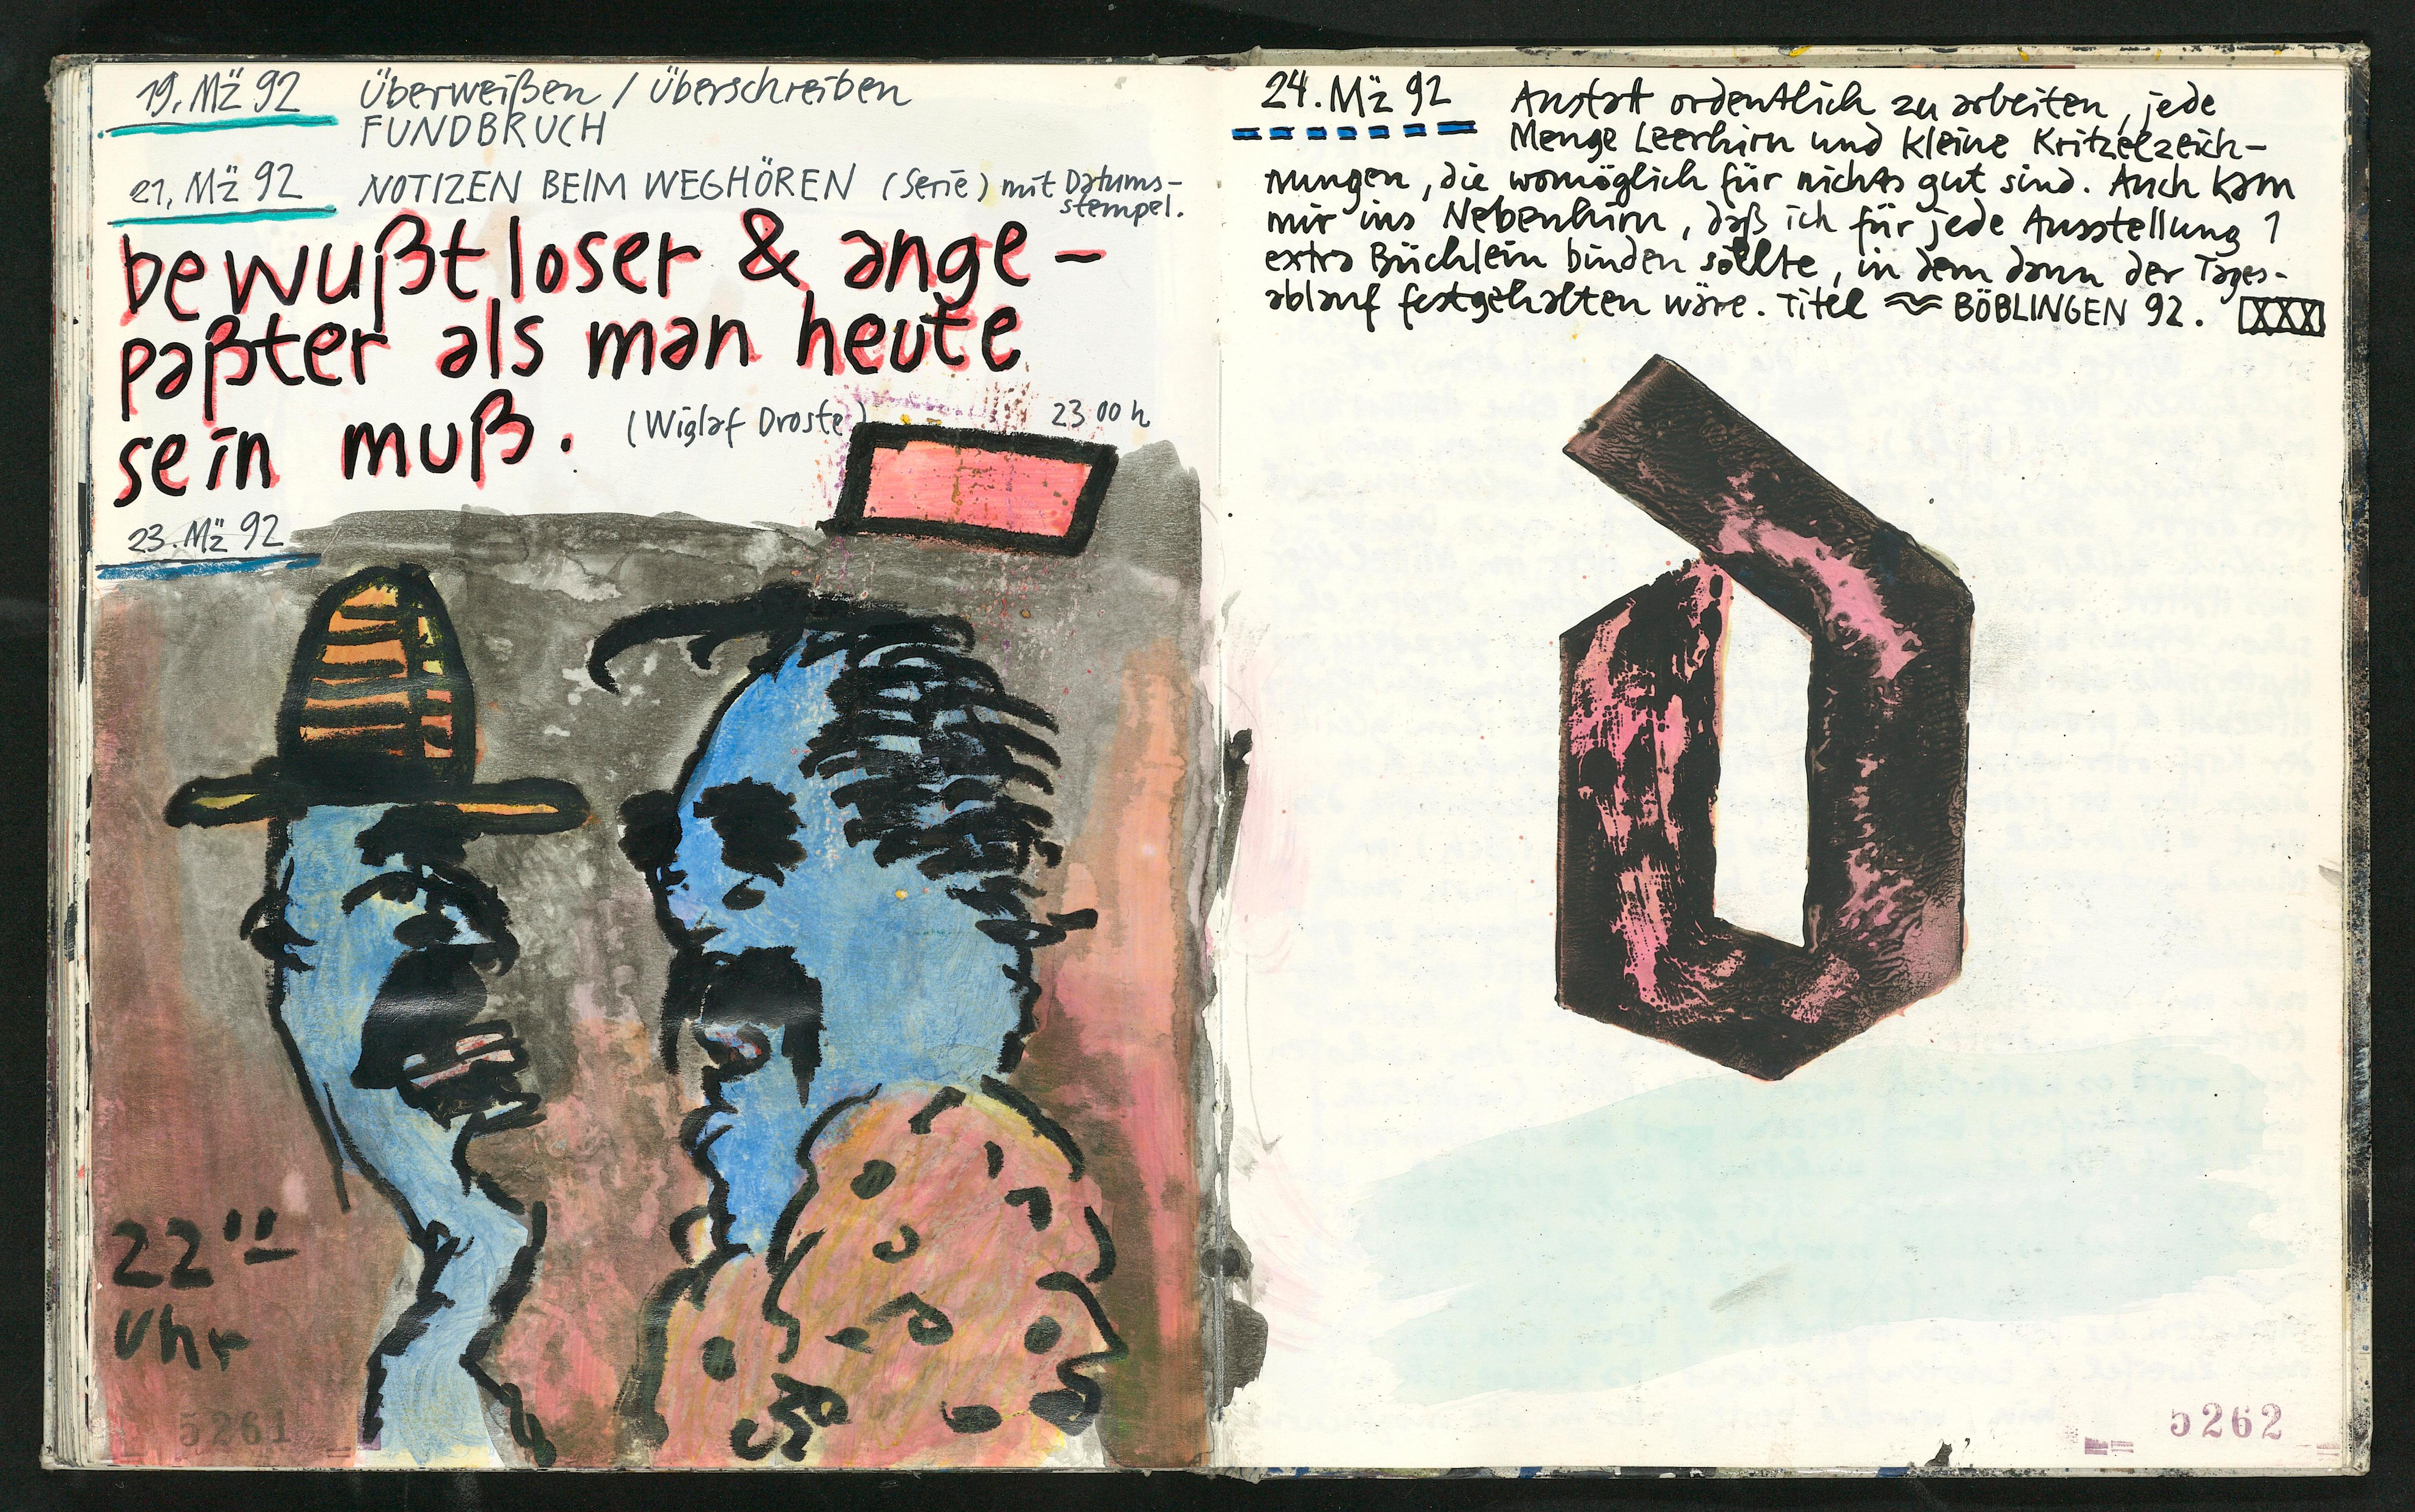 19. Mz̈ 92 Überweißen / Überschreiben
FUNDBRUCH
21. Mz̈ 92 NOTIZEN BEIM WEGHÖREN (Serie) mit Datums-
stempel.
bewußtloser & ange-
paßter als man heute
sein muß. (Wiglaf Droste) 23 00 h
23. Mz̈ 92
22
Uhr
5261
24. Mz̈ 92 Anstatt ordentlich zu arbeiten, jede
Menge Leerhirn und kleine Kritzelzeich-
nungen, die womöglich für nichts gut sind. Auch kam
mir ins Nebenhirn, daß ich für jede Ausstellung 1
extra Büchlein binden sollte, in dem dann der Tages-
ablauf festgehalten wäre. Titel ≈ BÖBLINGEN 92. XXX
5262